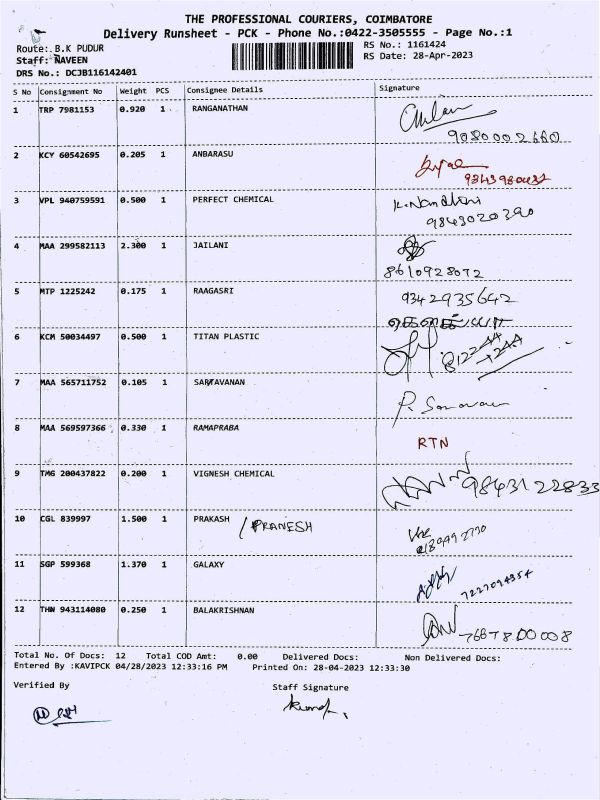 THE PROFESSIONAL COURIERS, COIMBATORE
Delivery Runsheet - PCK - Phone No.:0422-3505555 - Page No.:1
Route: B.K PUDUR
RS No.: 1161424
Staff: NAVEEN
RS Date: 28-Apr-2023
DRS No.: DCJB116142401
S No Consignment No Weight PCS Consignee Details Signature
1 TRP 7981153 0.920 1 RANGANATHAN
9080002660
2 KCY 60542695 0.205 1 ANBARASU
3 VPL 940759591 0.500 1 PERFECT CHEMICAL
9843020390
4 MAA 299582113 2.300 1 JAILANI
8610928072
5 MTP 1225242 0.175 1 RAAGASRI
9342935642
6 KCM 50034497 0.500 1 TITAN PLASTIC
7 MAA 565711752 0.105 1 SARTAVANAN
8 MAA 569597366 0.330 1 RAMAPRABA
RTN
9 TMG 200437822 0.200 1 VIGNESH CHEMICAL
9843122833
10 CGL 839997 1.500 1 PRAKASH /PRANESH
11 SGP 599368 1.370 1 GALAXY
12 THN 943114080 0.250 1 BALAKRISHNAN
Total No. Of Docs: 12 Total COD Amt: 0.00 Delivered Docs: Non Delivered Docs:
Entered By :KAVIPCK 04/28/2023 12:33:16 PM Printed On: 28-04-2023 12:33:30
Verified By
Staff Signature